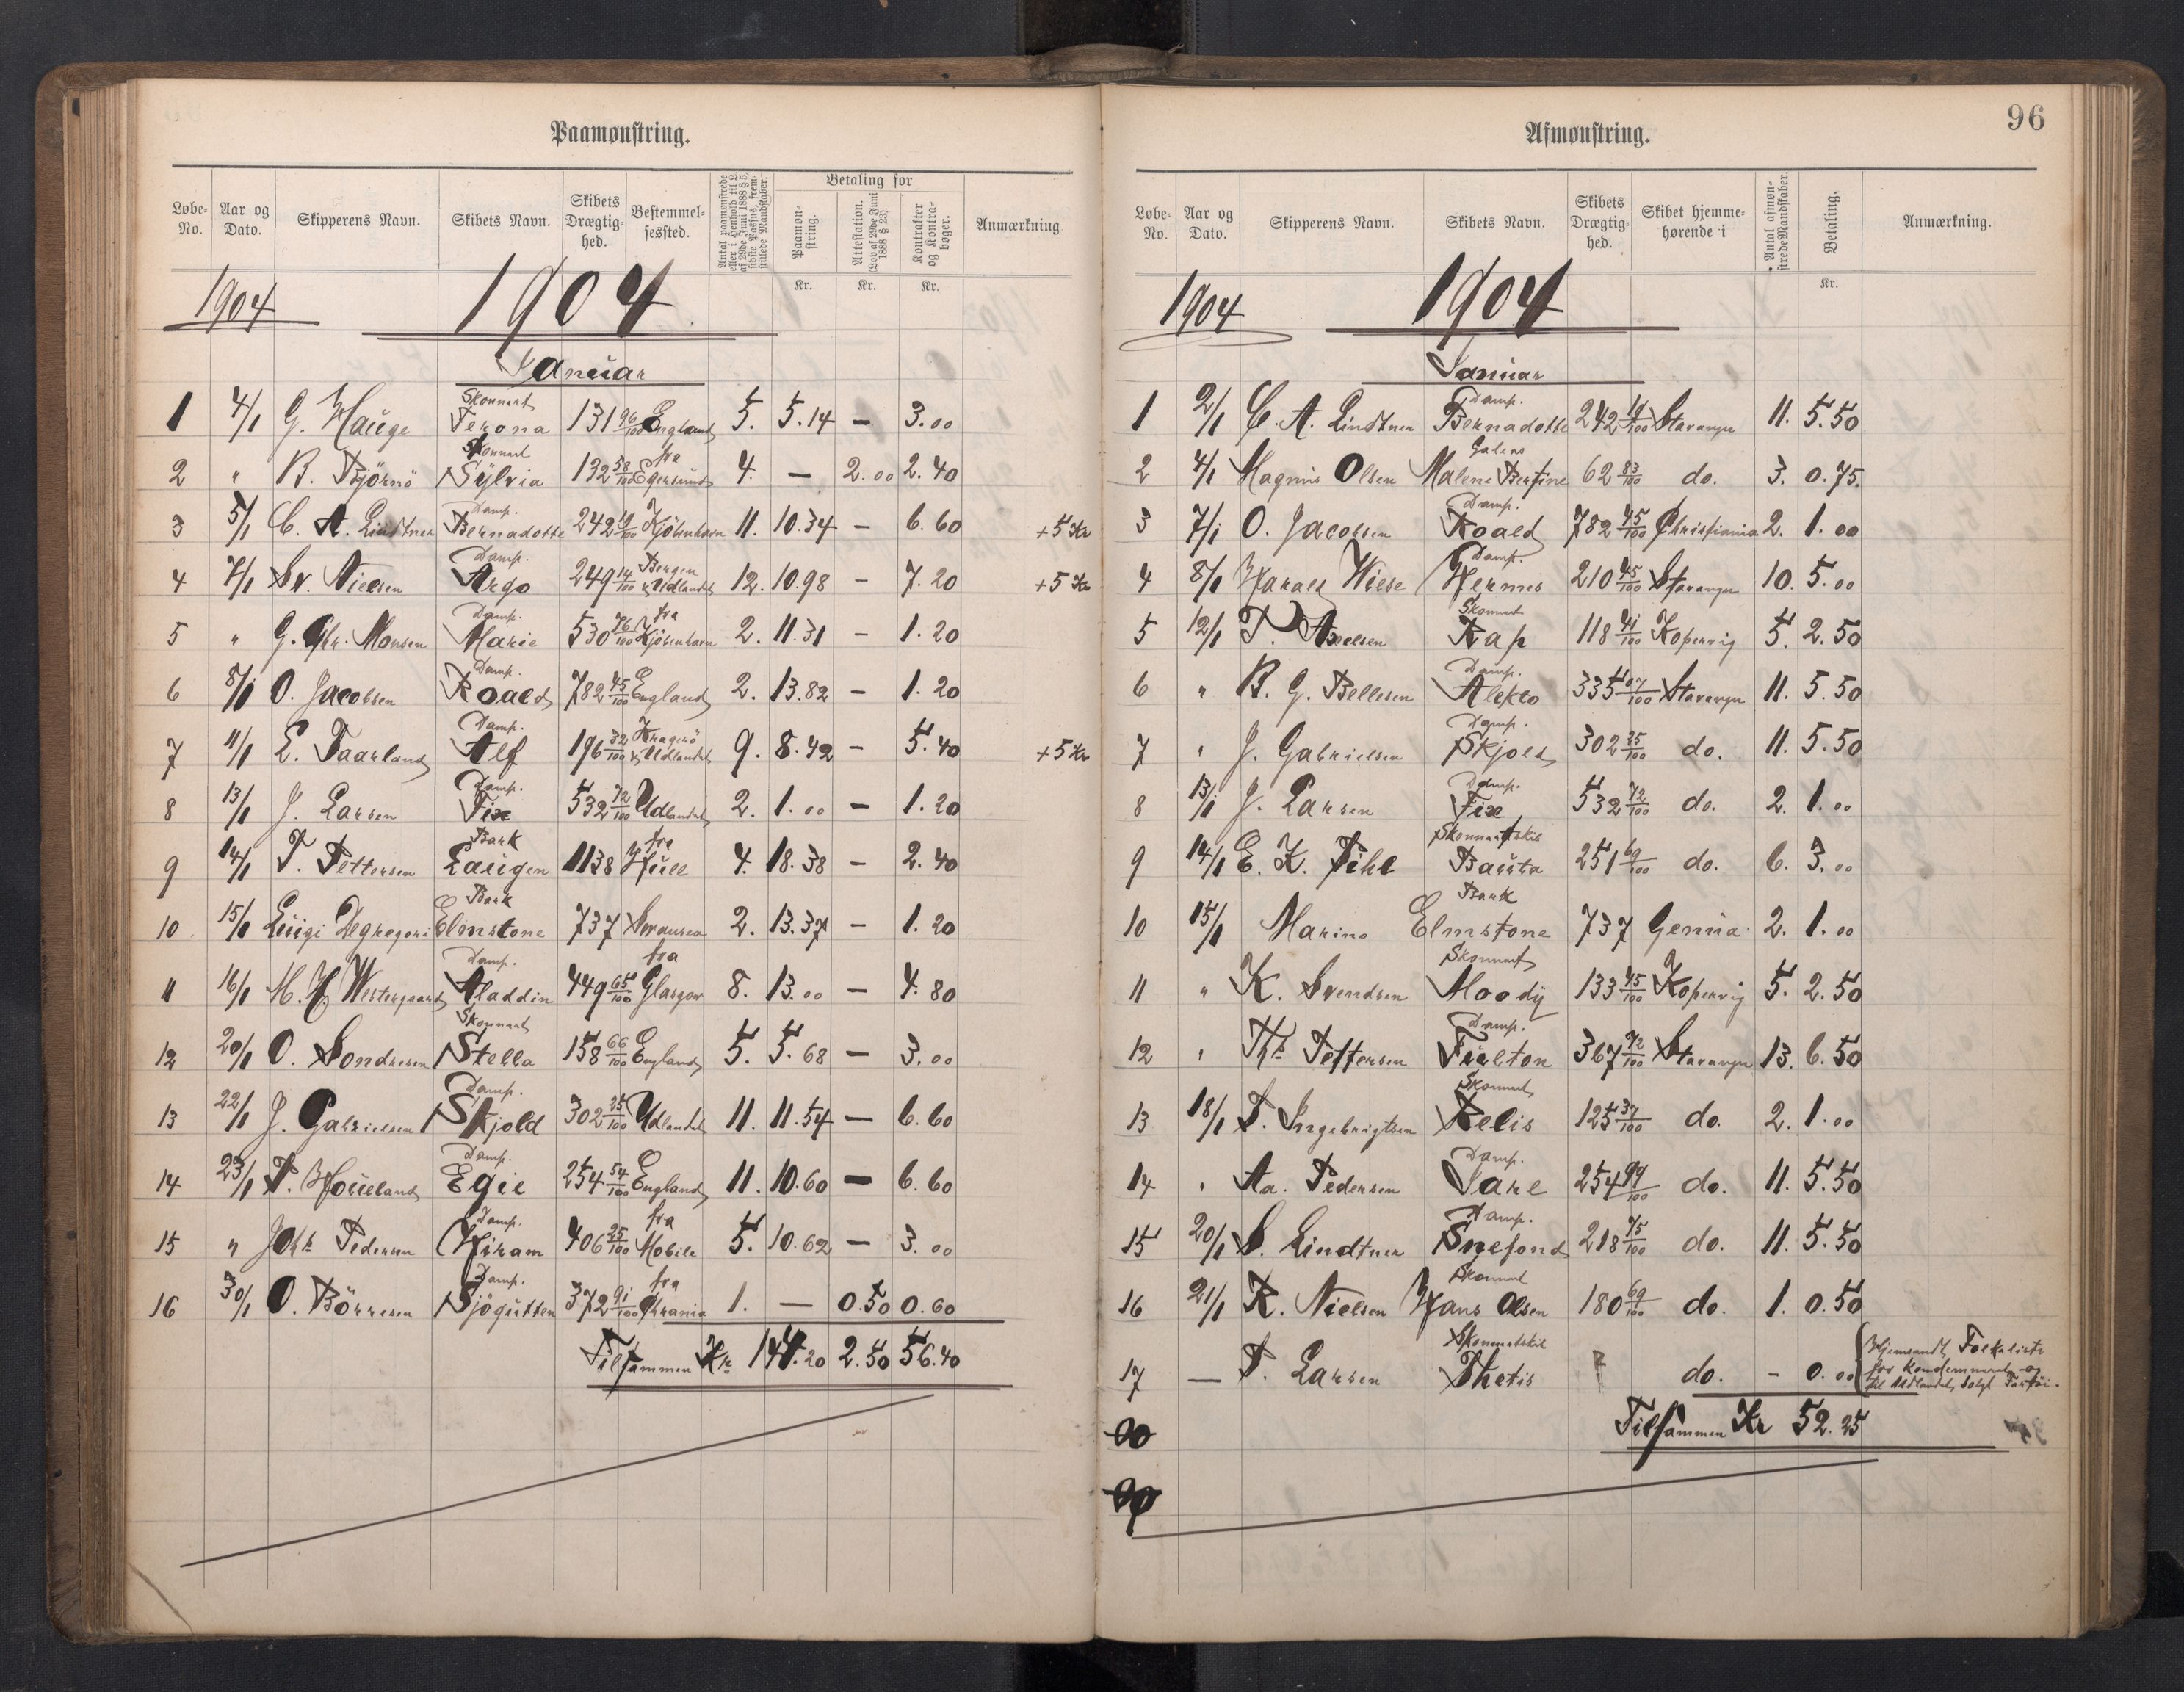 Paamønstring.
Løbe-No. Aar og Dato. Skipperens Navn. Skibets Navn. Skibets Drægtighed. Bestemmelsessted. Antal paamønstrede eller i Henhold til L. af 29de Juni 1888 § 5, sidste Passus, fremstillede Mandskaber. Betaling for Paamønstring. Attestation. (Lov af 29de Juni 1888 § 23). Kontrakter og Kontrabøger. Anmærkning
Kr. Kr. Kr.
1904 1904
Januar
1 4/1 G. Hauge Skonnert Verona 131 96/100 England 5. 5.14 — 3.00
2 " B. Bjørnø Skonnert Sylvia 132 58/100 fra Egersund 4. — 2.00 2.40
3 5/1 C. A. Lindtner Damp. Bernadotte 242 19/100 Kjöbenhavn 11. 10.34 — 6.60 +5 Kr
4 7/1 Sv. Nielsen Damp. Argo 249 14/100 Bergen & Udlandet 12. 10.98 — 7.20 +5 Kr
5 " G. Chr. Monsen Damp. Marie 530 76/100 fra Kjöbenhavn 2. 11.31 — 1.20
6 8/1 O. Jacobsen Damp. Roald 782 45/100 England 2. 13.82 — 1.20
7 11/1 E. Taarland Damp. Alf 196 32/100 Kragerö & Udlandet 9. 8.42 — 5.40 +5 Kr
8 13/1 J. Larsen Damp. Fix 532 72/100 Udlandet 2. 1.00 — 1.20
9 14/1 T. Pettersen Bark Lauigen 1138 fra Hull 4. 18.38 — 2.40
10 15/1 Luigi Degregori Bark Elmstone 737 Swansea 2. 13.37 — 1.20
11 16/1 M. H. Westergaard Damp. Aladdin 449 65/100 fra Glasgow 8. 13.00 — 4.80
12 20/1 O. Sondresen Skonnert Stella 158 66/100 England 5. 5.68 — 3.00
13 22/1 J. Gabrielsen Damp. Skjold 302 25/100 Udlandet 11. 11.54 — 6.60
14 23/1 T. Houeland Damp. Egil 254 54/100 England 11. 10.60 — 6.60
15 " Johs Pedersen Damp. Hiram 406 25/100 fra Mobile 5. 10.62 — 3.00
16 30/1 O. Börresen Damp. Sjögutten 372 91/100 fra Chrania 1. — 0.50 0.60
Tilsammen Kr 144.20 2.50 56.40
96
Afmønstring.
Løbe-No. Aar og Dato. Skipperens Navn. Skibets Navn. Skibets Drægtighed. Skibet hjemmehørende i Antal afmønstrede Mandskaber. Betaling. Anmærkning.
Kr.
1904 1904
Januar
1 2/1 C. A. Lindtner Damp. Bernadotte 242 19/100 Stavanger 11. 5.50
2 4/1 Magnus Olsen Galeas Malene Bertine 62 83/100 do. 3. 0.75.
3 7/1 O. Jacobsen Damp. Roald 782 45/100 Christiania 2. 1.00
4 8/1 Harald Wiese Damp. Hermes 210 45/100 Stavanger 10. 5.00
5 12/1 T. Axelsen Skonnert Rap 118 41/100 Kopervig 5. 2.50
6 " B. G. Bellesen Damp. Alekto 335 07/100 Stavanger 11. 5.50
7 " J. Gabrielsen Damp. Skjold 302 25/100 do. 11. 5.50
8 13/1 J. Larsen Damp. Fix 532 72/100 do. 2. 1.00
9 14/1 E. K. Pihl Skonnertskib Bauta 251 69/100 do. 6. 3.00
10 15/1 Marino Bark Elmstone 737 Genua 2. 1.00
11 " K. Svendsen Skonnert Moody 133 45/100 Kopervig 5. 2.50
12 " Ths Pettersen Damp. Fulton 367 92/100 Stavanger 13. 6.50
13 18/1 T. Ingebrigtsen Skonnert Kelis 125 37/100 do. 2. 1.00
14 " Aa. Pedersen Damp. Jarl 254 99/100 do. 11. 5.50
15 20/1 S. Lindtner Damp. Snefond 218 75/100 do. 11. 5.50
16 21/1 R. Nielsen Skonnert Hans Olsen 180 69/100 do. 1. 0.50
17 — T. Larsen Skonnertskib Thetis do. - 0.00 Hjemsendt Folkeliste for kondemneret og til Udlandet solgt Fartöi.
Tilsammen Kr 52.25